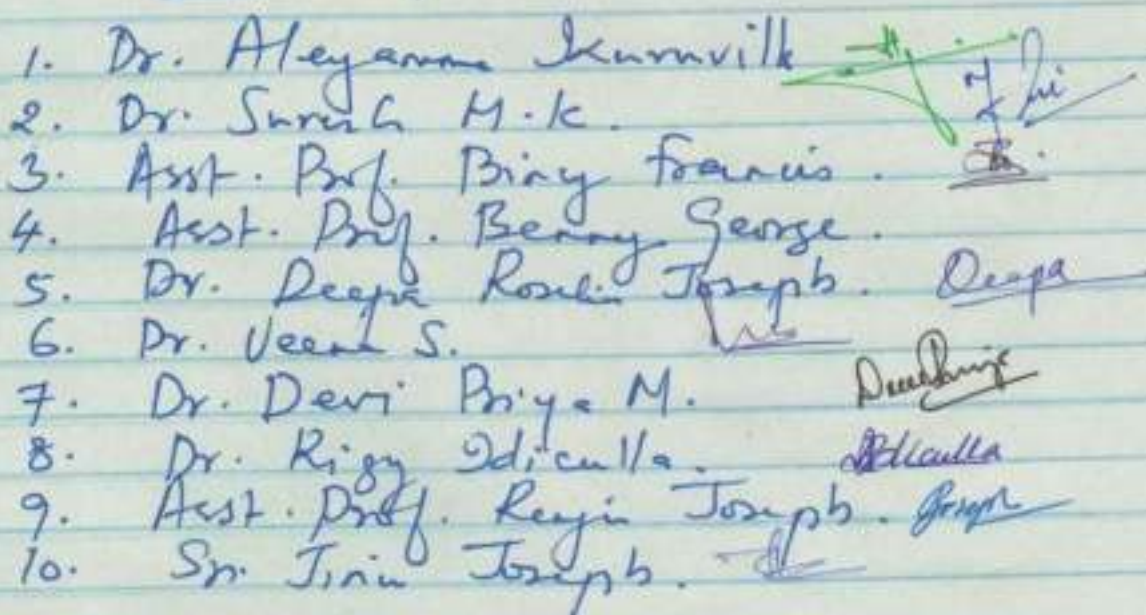 1. Dr. Aleyamma Kuruvilla
2. Dr. Suresh M.K.
3. Asst. Prof. Bincy Francis.
4. Asst. Prof. Benny George.
5. Dr. Deepa Roselin Joseph. Deepa
6. Dr. Veena S.
7. Dr. Devi Priya M.
8. Dr. Rigy Idiculla. Idiculla
9. Asst. Prof. Renjin Joseph. Joseph
10. Sr. Jinu Joseph.